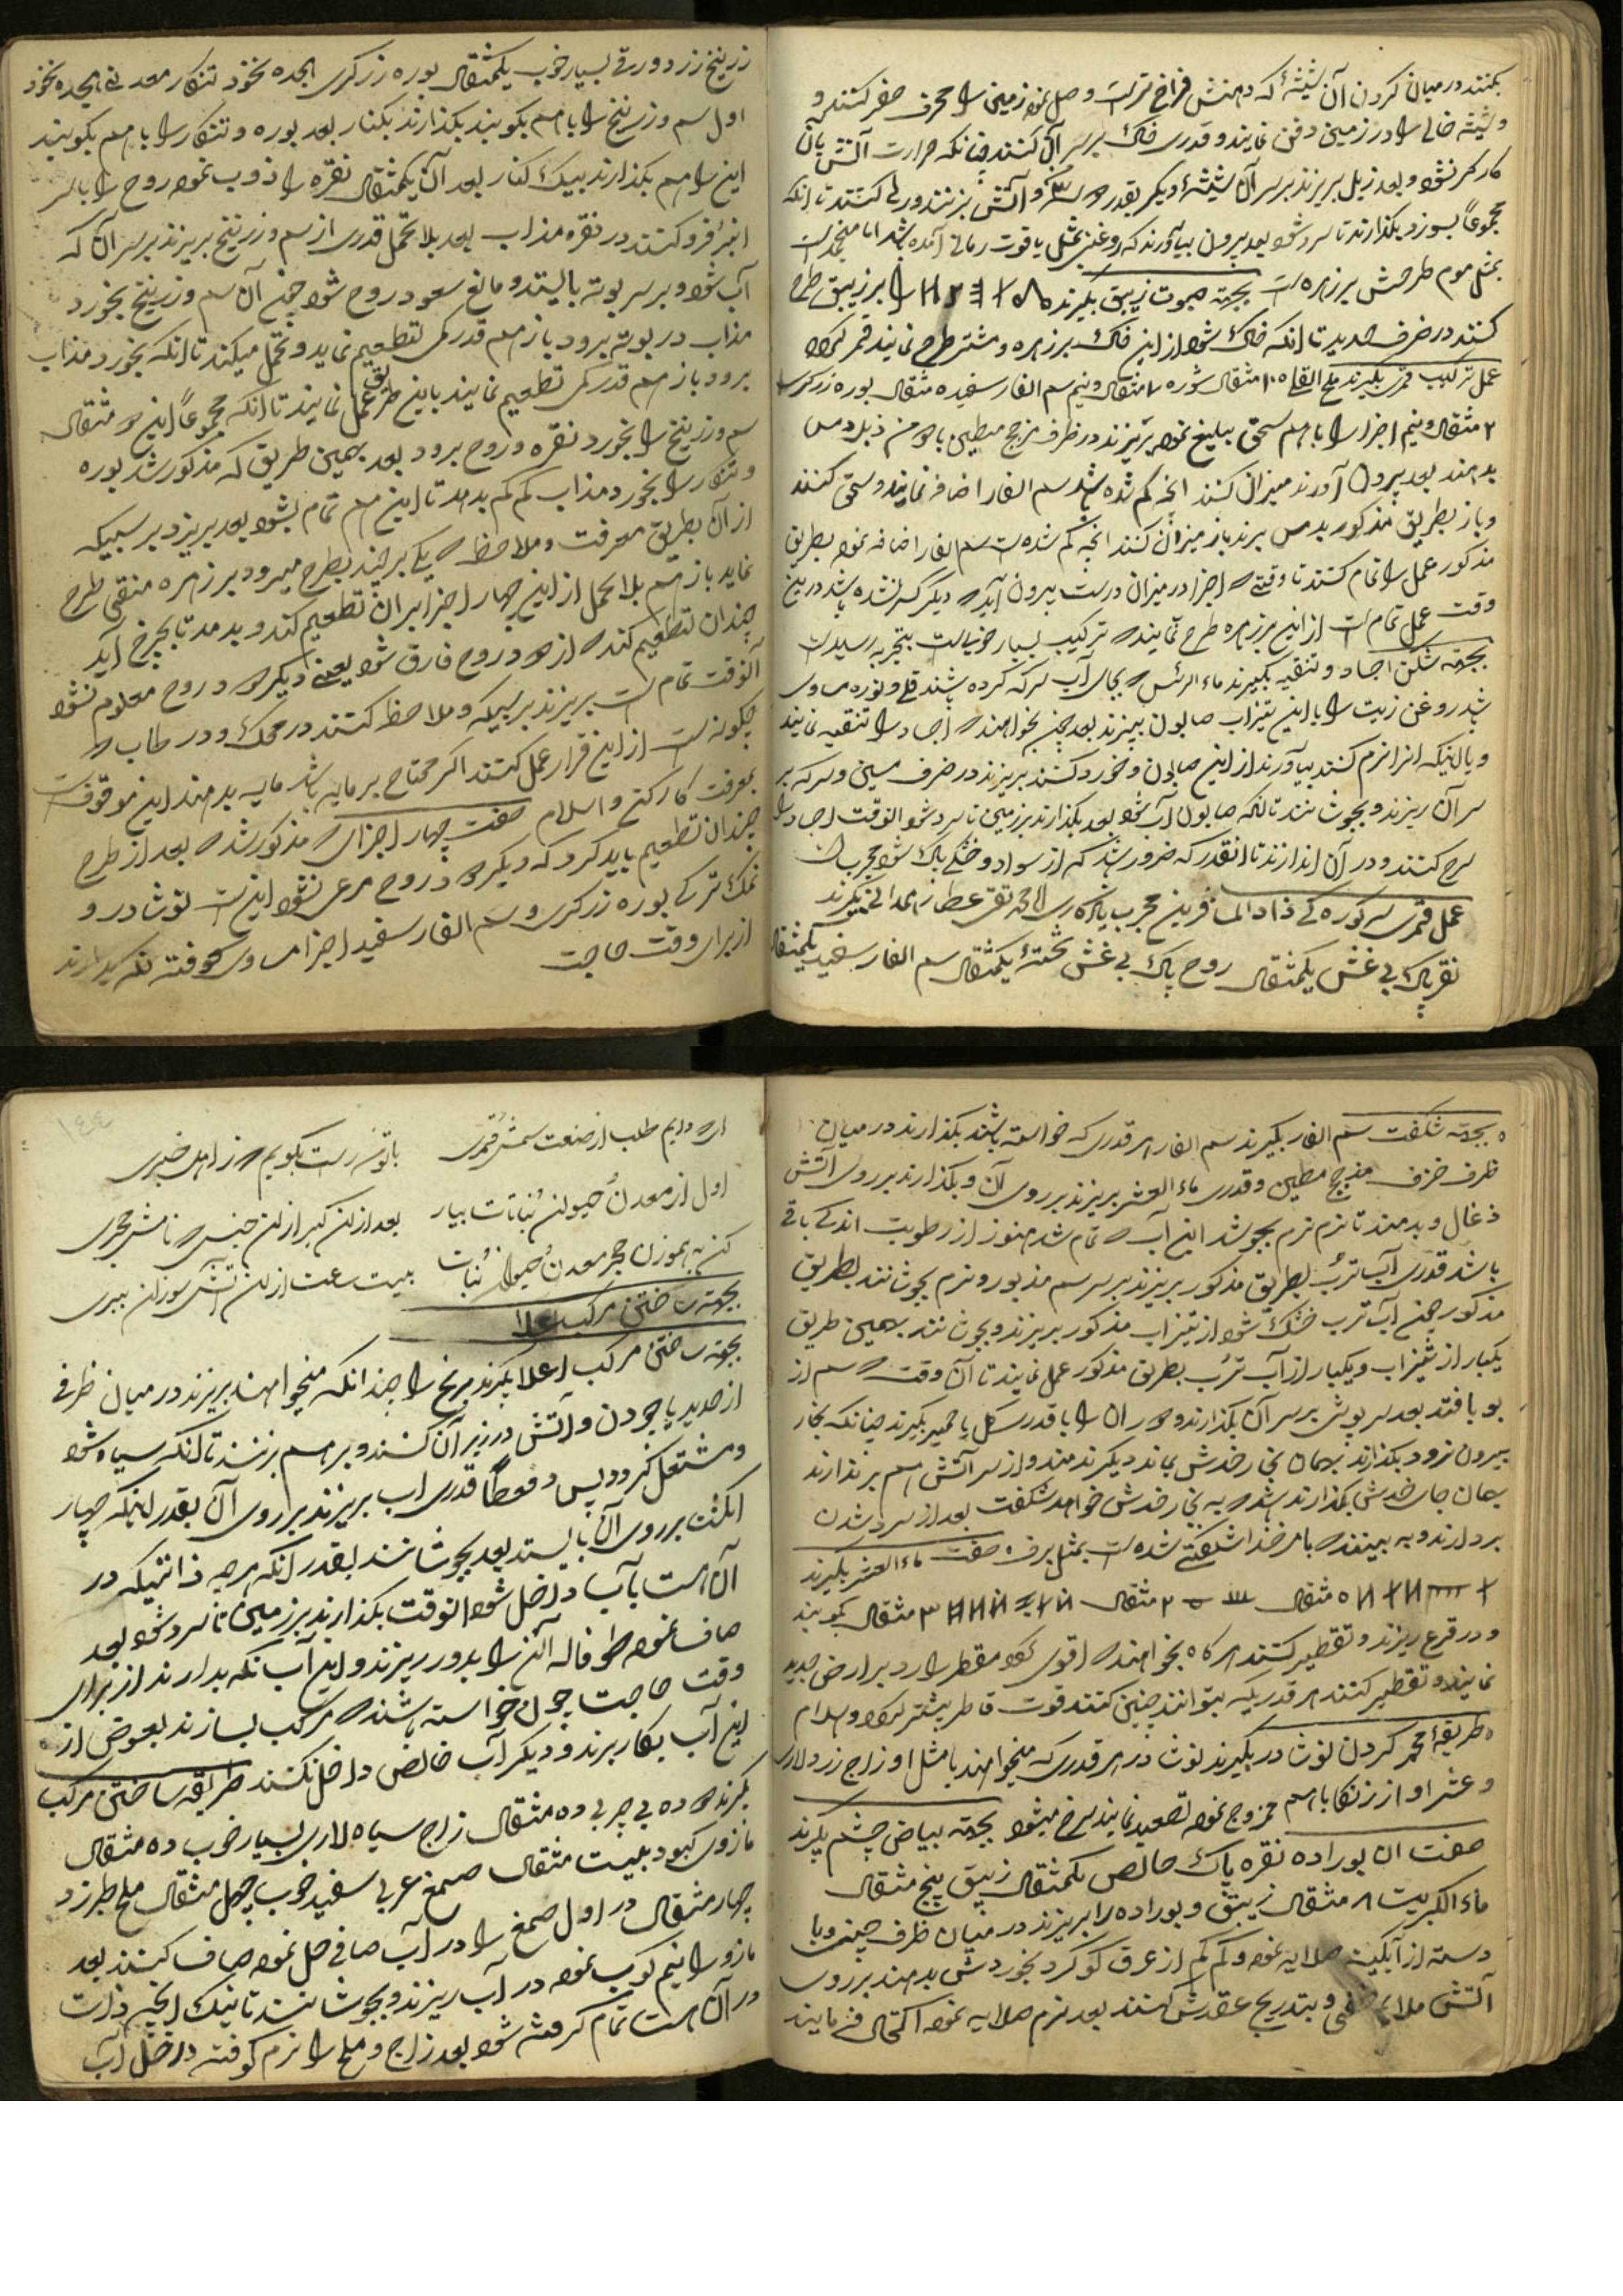 بکنند در میان کردن آن شیشهٔ که دهنش فراخ تر است و صل نموده زمین را محرف حفر کنند و
و شیشه خالی را در زمین دفن نمایند و قدری خاک بر سر آن کنند چنانکه حرارت آتش بآن
کارگر نشود و بعد زبل بریزند بر سر آن شیشهٔ دیگر بقدر و آتش بزنند ورها کنند تا انکه
مجموعاً بسوزد بکذارند تا سرد شود بعد بیرون بیاورند که روغنی بمثل یاقوت رمانی آمده باشد اما منجمد است
بمثل موم طرحش بر زهره است بجهته صبوت زیبق بکیرند را بر زیبق طرح
کنند در ظرف حدید تا انکه خاک شود از این خاک بر زهره و مشتری طرح نمایند قمر کردد
عمل ترکیب قمری بکیرند ملح القلی ۱۰۵ مثقال شوره ۷ مثقال و نیم سم الفار سفید ۵ مثقال بوره زرکری
۲ مثقال و نیم اجزا را با هم سحق بلیغ نموده بریزند در ظرف مزجج مطین با دو من ذبل دمس
بدهند بعد بیرون آورند میزان کنند انچه کم شده باشد سم الفار اضافه نمایند و سحق کنند
و باز بطریق مذکور بدمس برند باز میزان کنند انچه کم شده است سم الفار اضافه نموده بطریق
مذکور عمل را تمام کنند تا وقتی که اجزا در میزان درست بیرون آید که دیگر کسر نشده باشد در این
وقت عمل تمام است از این بر زهره طرح نمایند که ترکیب بسیار خوبیست بتجربه رسیده است
بجهته شکن اجساد و تنقیه بکیرند ماء الرئس که بجای آب سرکه کرده باشند قلی و نوره مساوی
باشد روغن زیت را با این تیزاب صابون بپزند بعد چون بخواهند که اجساد را تنقیه نمایند
و یا اینکه انرا نرم کنند بیاورند از این صابون و خورد کنند بریزند در ظرف مسین و سرکه بر
سر آن ریزند و بجوشانند تا انکه صابون آب شود بعد بکذارند بر زمین تا سرد شود انوقت اجساد را
سرخ کنند و در آن اندازند تا انقدر که ضرور باشد که از سواد و خشکی پاک شود مجرب است
عمل قمری سر کوره کی ذاد المسافرین مجرب بیادکاری لالا محمد تقی عطار همدانی بکیرند
نقره پاک بی غش یکمثقال روح پاک بی غش تختهٔ یکمثقال سم الفار سفید یکمثقال
زرنیخ زرد ورقی بسیار خوب یکمثقال بوره زرکری هجده نخود تنکار معدنی هجده نخود
اول سم و زرنیخ را با هم بکوبند بکذارند بکنار بعد بوره و تنکار را با هم بکوبند
این را هم بکذارند بیک کنار بعد آن یکمثقال نقره را ذوب نموده روح را با سر
انبر فرو کنند در نقره مذاب بعد بلا تحمل قدری از سم و زرنیخ بریزند بر سر آن که
آب شود و بر سر بوته بایستد و مانع صعود روح شود چون آن سم و زرنیخ بخورد
مذاب در بوته برود باز هم قدر کمی تطعیم نماید و تحمل میکند تا انکه بخورد مذاب
برود باز هم قدر کمی تطعیم نمایند باین طریق عمل نمایند تا انکه مجموعاً این دو مثقال
سم و زرنیخ را بخورد نقره و روح برود بعد بهمین طریق که مذکور شد بوره
و تنکار را بخورد مذاب کم کم بدهد تا این هم تمام بشود بعد بریزد بر سبیکه
از آن بطریق معرفت و ملاحظه که یکی بر چند بطرح میرود بر زهره منقی طرح
نماید باز هم بلا تحمل از این چهار اجزا بر ان تطعیم کند و بدمد تا بچرخ آید
چندان تطعیم کند که از دود روح فارق شود یعنی دیگر دود روح معلوم نشود
آنوقت تمام است بریزند بر سبیکه و ملاحظه کنند در محک و در طاب که
چکونه است از این قرار عمل کنند اکر محتاج بر مایه باشد مایه بدهند این موقوفست
بمعرفت کارکنج والسلام صفت چهار اجزای که مذکور شد که بعد از طرح
چندان تطعیم باید کرد که دیگر دود روح مرعی نشود اینست نوشادر و
نمک ترکی بوره زرکری و سم الفار سفید اجزا مساوی کوفته نکهدارند
از برای وقت حاجت
بجهته شکفت سم الفار بکیرند سم الفار هر قدری که خواسته باشند بکذارند در میان
ظرف خزف مزجج مطین و قدری ماء العشر بریزند بر روی آن و بکذارند بر روی آتش
ذغال و بدمند تا نرم نرم بجوشد این آب که تمام شد هنوز از رطوبت اندکی باقی
باشد قدری آب ترب بطریق مذکور بریزند بر سر سم مذبور و نرم بجوشانند بطریق
مذکور چون آب ترب خشک شود از تیزاب مذکور بریزند و بجوشانند بهمین طریق
یکبار از تیزاب و یکبار از آب ترب بطریق مذکور عمل نمایند تا آن وقت که سم از
بو بافتد بعد سرپوش بر سر آن بکذارند و دور ان را با قدری کل یا خمیر بکیرند چنانکه بخار
بیرون نرود بکذارند بهمان بخار خدش بماند دیگر ندمند و از سر آتش هم بر ندارند
بهمان جای خدش بکذارند باشد که به بخار خدش خواهد شکفت بعد از سرد شدن
بردارند و به بینند که بامر خدا شکفته شده است بمثل برف صفت ماء العشر بکیرند
۵ مثقال ۲ مثقال ۳ مثقال بکوبند
و در قرع ریزند و تقطیر کنند هر کاه بخواهند که اقوی کردد مقطر را رد بر ارض جدید
نمایند و تقطیر کنند هر قدریکه بتوانند چنین کنند قوت قاطر بیشتر کردد والسلام
طریقهٔ محمر کردن نوشادر بکیرند نوشادر هر قدری که میخواهند با مثل او زاج زرد لاری
و عشر او از زنکار با هم ممزوج نموده تصعید نمایند سرخ میشود بجهته بیاض چشم بکیرند
صفت ان بوراده نقره پاک خالص یکمثقال زیبق پنج مثقال
ماء الکبریت ۸ مثقال زیبق و بوراده را بریزند در میان ظرف چینی و با
دسته از آبکینه صلایه نموده و کم کم از عرق کوکرد بخوردش بدهند بر روی
آتش ملایم و بتدریج عقدش کنند بعد نرم صلایه نموده اکتحال فرمایند
ای که دایم طلب از صنعت شمس قمری باتو من راست بکویم که ز اهل خبری
اول از معدن و حیوان و نباتات بیار بعد از ان کیر از ان جنس که نامش حجری
کن به هموزن حجر معدن و حیوان و نبات بیست ساعت از ان آتش سوزان ببری
بجهته ساختن مرکب اعلا
بجهته ساختن مرکب اعلا بکیرند برنج را چندانکه میخواهند بریزند در میان ظرفی
از حدید یا چودن و آتش در زیر آن کنند و بر هم بزنند تا انکه سیاه شود
و مشتعل کردد پس دفعطاً قدری اب بریزند بر روی آن بقدر اینکه چهار
انکشت بر روی آن بایستد بعد بجوشانند بقدر انکه هر چه ذاتیکه در
آن است بآب داخل شود انوقت بکذارند بر زمین تا سرد شود بعد
صاف نموده طوفاله انرا بدور ریزند و این آب نکه بدارند از برای
وقت حاجت چون خواسته باشند که مرکب بسازند بعوض از
این آب بکار برند و دیگر آب خالص داخل نکنند طریقه ساختن مرکب
بکیرند دوده بی چربی ده مثقال زاج سیاه لاری بسیار خوب ده مثقال
مازوی کبود بیست مثقال صمغ عربی سفید خوب چهل مثقال ملح طبرزد
چهار مثقال در اول صمغ را در آب صافی حل نموده صاف کنند بعد
مازو را نیم کوب نموده در آب ریزند و بجوشانند تا نیک انچه ذات
در آن است تمام کرفته شود بعد زاج و ملح را نرم کوفته داخل آب